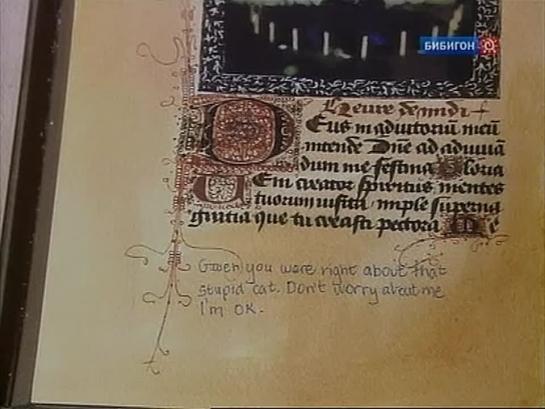 БИБИГОН
Heure de midi
Deus in adiutoriū meū
intende Dn̄e ad adiuuā
dum me festina Gloria
Veni creator spiritus, mentes
tuorum visita, imple superna
gratia que tu creasti pectora Me
Gwen you were right about that
stupid cat. Don't worry about me
I'm OK.